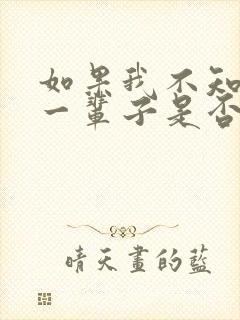 如果我不知
一輩子是否
晴天畫的藍